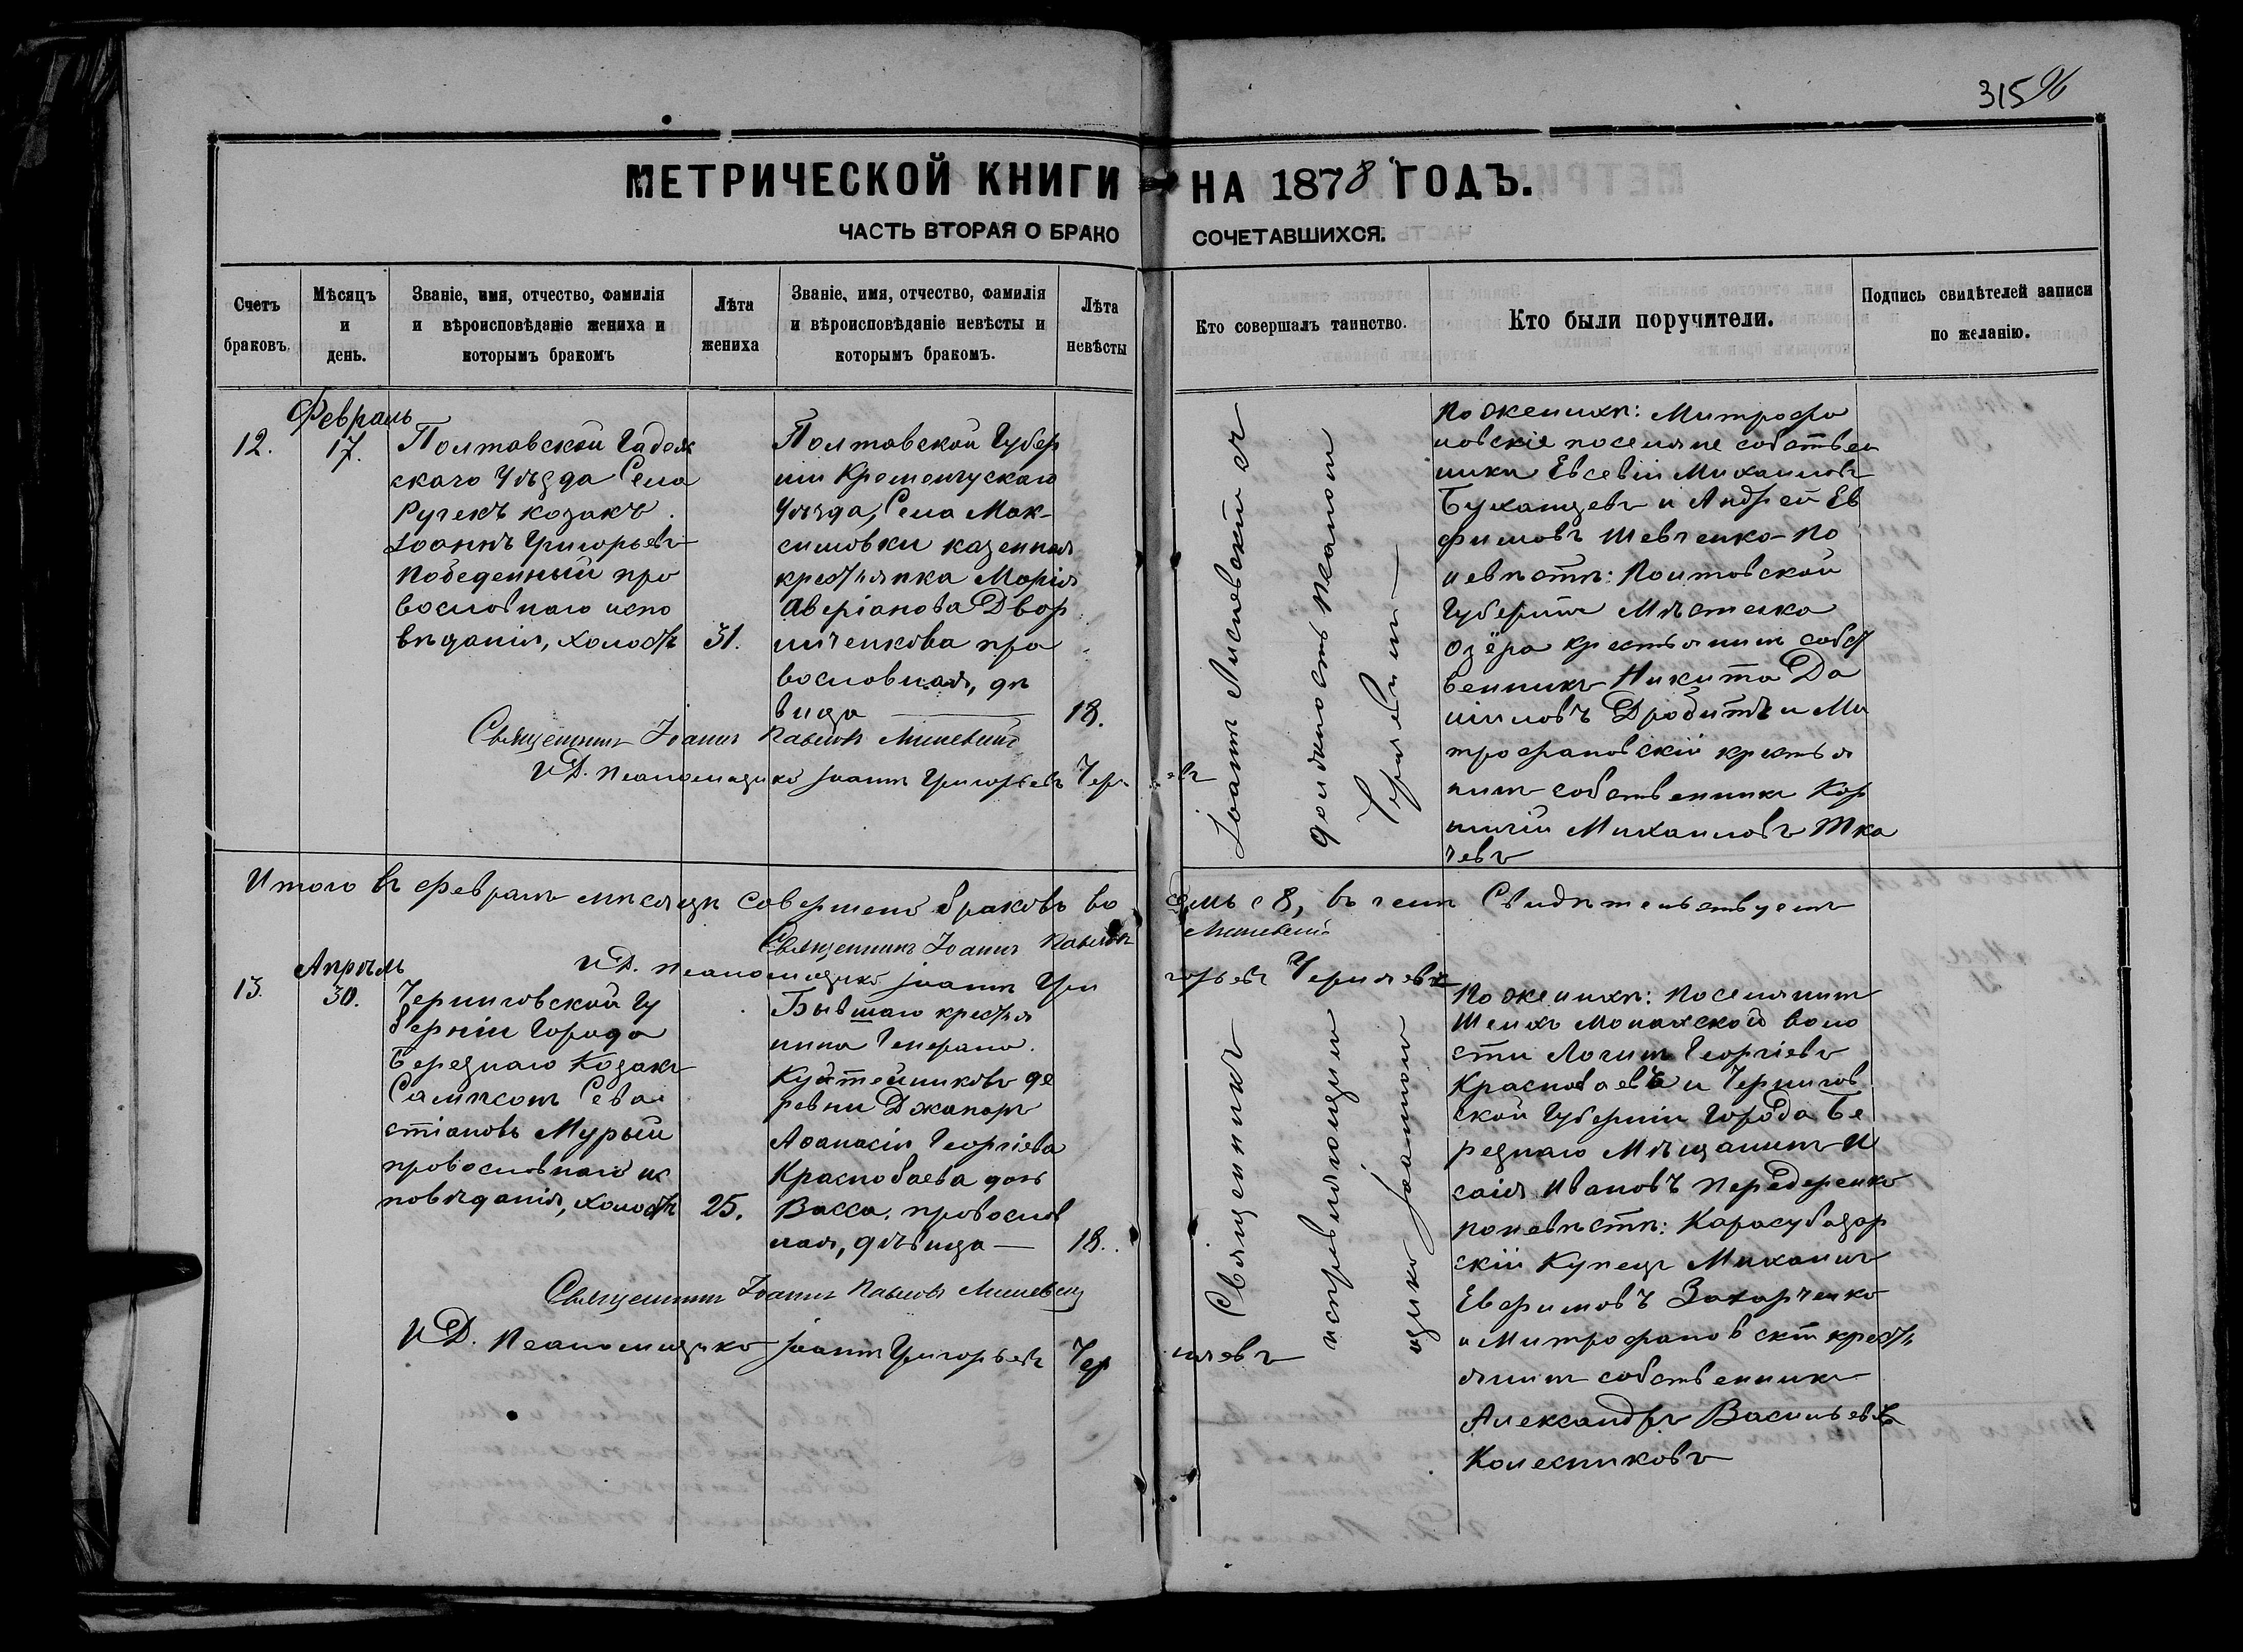 315 96
МЕТРИЧЕСКОЙ КНИГИ НА 1878 ГОДЪ.
ЧАСТЬ ВТОРАЯ О БРАКО СОЧЕТАВШИХСЯ.
Счетъ браковъ.
Мѣсяцъ и день.
Званіе, имя, отчество, фамилія и вѣроисповѣданіе жениха и которымъ бракомъ
Лѣта жениха
Званіе, имя, отчество, фамилія и вѣроисповѣданіе невѣсты и которымъ бракомъ.
Лѣта невѣсты
Кто совершалъ таинство.
Кто были поручители.
Подпись свидѣтелей записи по желанію.
12.
Февраль
17.
Полтавской Гадяч
скаго Уѣзда Села
Ручекъ козакъ
Іоаннъ Григорьевъ
Победенный пра
вославнаго испо
вѣданія, холостъ
31.
Полтавской Губер
ніи Кременчускаго
Уѣзда, Села Мак-
симовки казенная
крестьянка Марія
Аверіанова Двор
ниченкова пра
вославная, дѣ
вица
18.
Іоаннъ Лисневскій и
должность псалом
По женихѣ: Митрофа
новскіе поселяне собствен
ники Евсевій Михаиловъ
Буханцевъ и Андрей Ев
фимовъ Шевченко - По
невѣстѣ: Полтавской
Губерніи Мѣстечка
Озёра крестьянинъ собст
венникъ Никита Да
ниловъ Дробитъ и Ми
трофановскій крестья
нинъ собственникъ Кор
нилій Михаиловъ Тка
чевъ
Священникъ Іоаннъ Павловъ Лисневскій
И.Д. Псаломщика Іоаннъ Григорьевъ Чер
Итого въ февралѣ мѣсяцѣ совершено браковъ во семь = 8, въ чемъ Свидѣтельствуемъ
Священникъ Іоаннъ Павловъ Лисневскій
И.Д. Псаломщика Іоаннъ Гри горьевъ Чернявъ
13.
Апрѣль
30.
Черниговской Гу
берніи Города
Березнаго Козакъ
Сампсонъ Сева
стіановъ Мурый
православнаго ис
повѣданія, холостъ
25.
Бывшаго крестья
нина Генерала
Кушейниковъ де
ревни Джапаръ
Аѳанасія Георгіева
Краснобаева дочь
Васса, православ
ная, дѣвица
18.
Священникъ
исправляющимъ
щика Іоанномъ
По женихѣ: поселянинъ
Шеихъ Монахской воло
сти Логинъ Георгіевъ
Краснобаевъ и Чернигов
ской Губерніи Города Бе
резнаго Мѣщанинъ И
саія Ивановъ Передеренко
по невѣстѣ: Карасубазар
скій Купецъ Михаилъ
Евфимовъ Захарченко
и Митрофановскій кресть
янинъ собственникъ
Александръ Васильевъ
Колесниковъ
Священникъ Іоаннъ Павловъ Лисневскій
И.Д. Псаломщика Іоаннъ Григорьевъ Чер нявъ